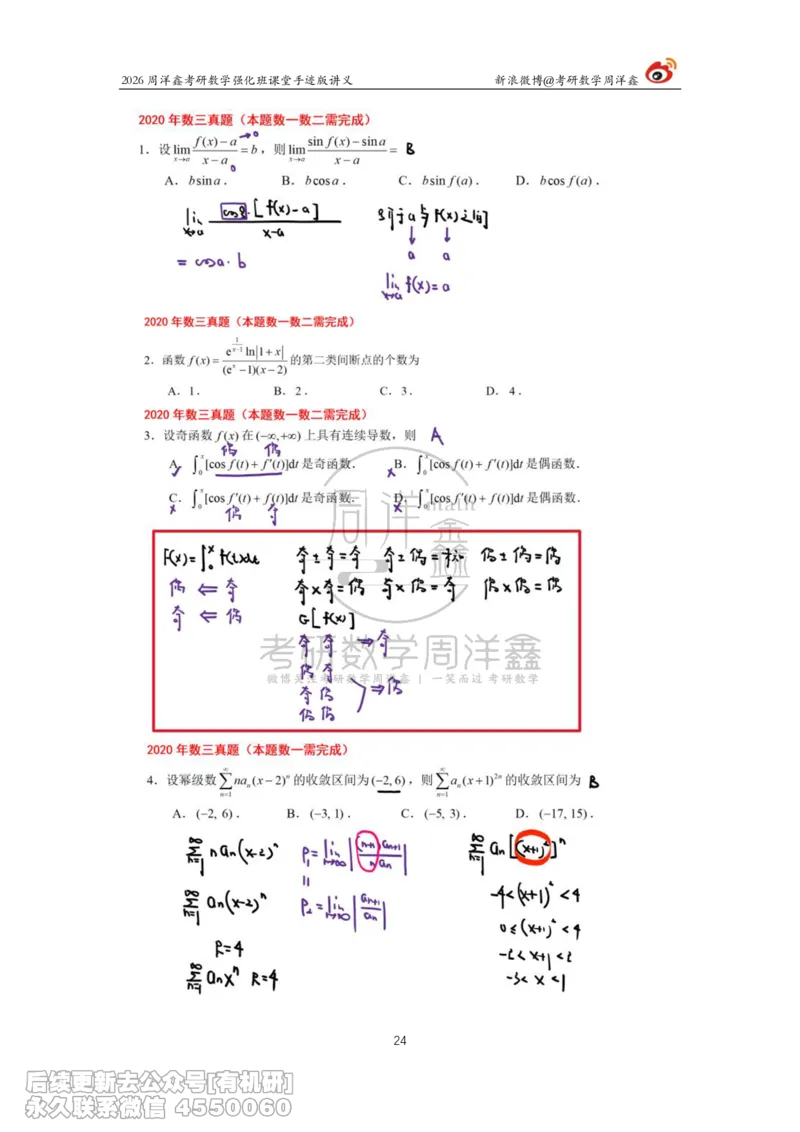 2026 周洋鑫考研数学强化班课堂手迹版讲义 新浪微博@考研数学周洋鑫
2020 年数三真题（本题数一数二需完成）
1．设 lim_{x→a} (f(x)−a)/(x−a) = b，则 lim_{x→a} (sin f(x)−sin a)/(x−a) = B
→0
0
A．b sin a． B．b cos a． C．b sin f(a)． D．b cos f(a)．
lim_{x→a} cosξ·[f(x)−a]/(x−a) ξ介于a与f(x)之间
↓ ↓
a a
= cosa·b
lim_{x→a} f(x)=a
2020 年数三真题（本题数一数二需完成）
2．函数 f(x) = e^{1/(x−1)} ln|1+x| / ((e^x −1)(x−2)) 的第二类间断点的个数为
A．1． B．2． C．3． D．4．
2020 年数三真题（本题数一数二需完成）
3．设奇函数 f(x) 在 (−∞,+∞) 上具有连续导数，则 A
偶 偶
A．∫_0^x [cos f(t)+ f′(t)]dt 是奇函数． B．∫_0^x [cos f(t)+ f′(t)]dt 是偶函数．
C．∫_0^x [cos f′(t)+ f(t)]dt 是奇函数． D．∫_0^x [cos f′(t)+ f(t)]dt 是偶函数．
偶 奇
F(x)=∫_0^x f(t)dt 奇±奇=奇 奇±偶=非 偶±偶=偶
偶 ⇐ 奇 奇×奇=偶 奇×偶=奇 偶×偶=偶
奇 ⇐ 偶 G[f(x)]
奇 奇 ⇒奇
偶 奇
奇 偶 ⇒偶
偶 偶
周洋鑫
math
考研数学周洋鑫
微博关注考研数学周洋鑫 | 一笑而过 考研数学
2020 年数三真题（本题数一需完成）
4．设幂级数 ∑_{n=1}^∞ na_n(x−2)^n 的收敛区间为 (−2, 6)，则 ∑_{n=1}^∞ a_n(x+1)^{2n} 的收敛区间为 B
A．(−2, 6)． B．(−3, 1)． C．(−5, 3)． D．(−17, 15)．
∑_{n=1}^∞ n a_n(x−2)^n ρ_1=lim_{n→∞} |(n+1)a_{n+1}/(n a_n)| ∑_{n=1}^∞ a_n[(x+1)^2]^n
||
∑_{n=1}^∞ a_n(x−2)^n ρ_2=lim_{n→∞} |a_{n+1}/a_n| −4<(x+1)^2<4
0≤(x+1)^2<4
R=4 −2<x+1<2
∑_{n=1}^∞ a_n x^n R=4 −3<x<1
24
后续更新去公众号[有机研]
永久联系微信 4550060